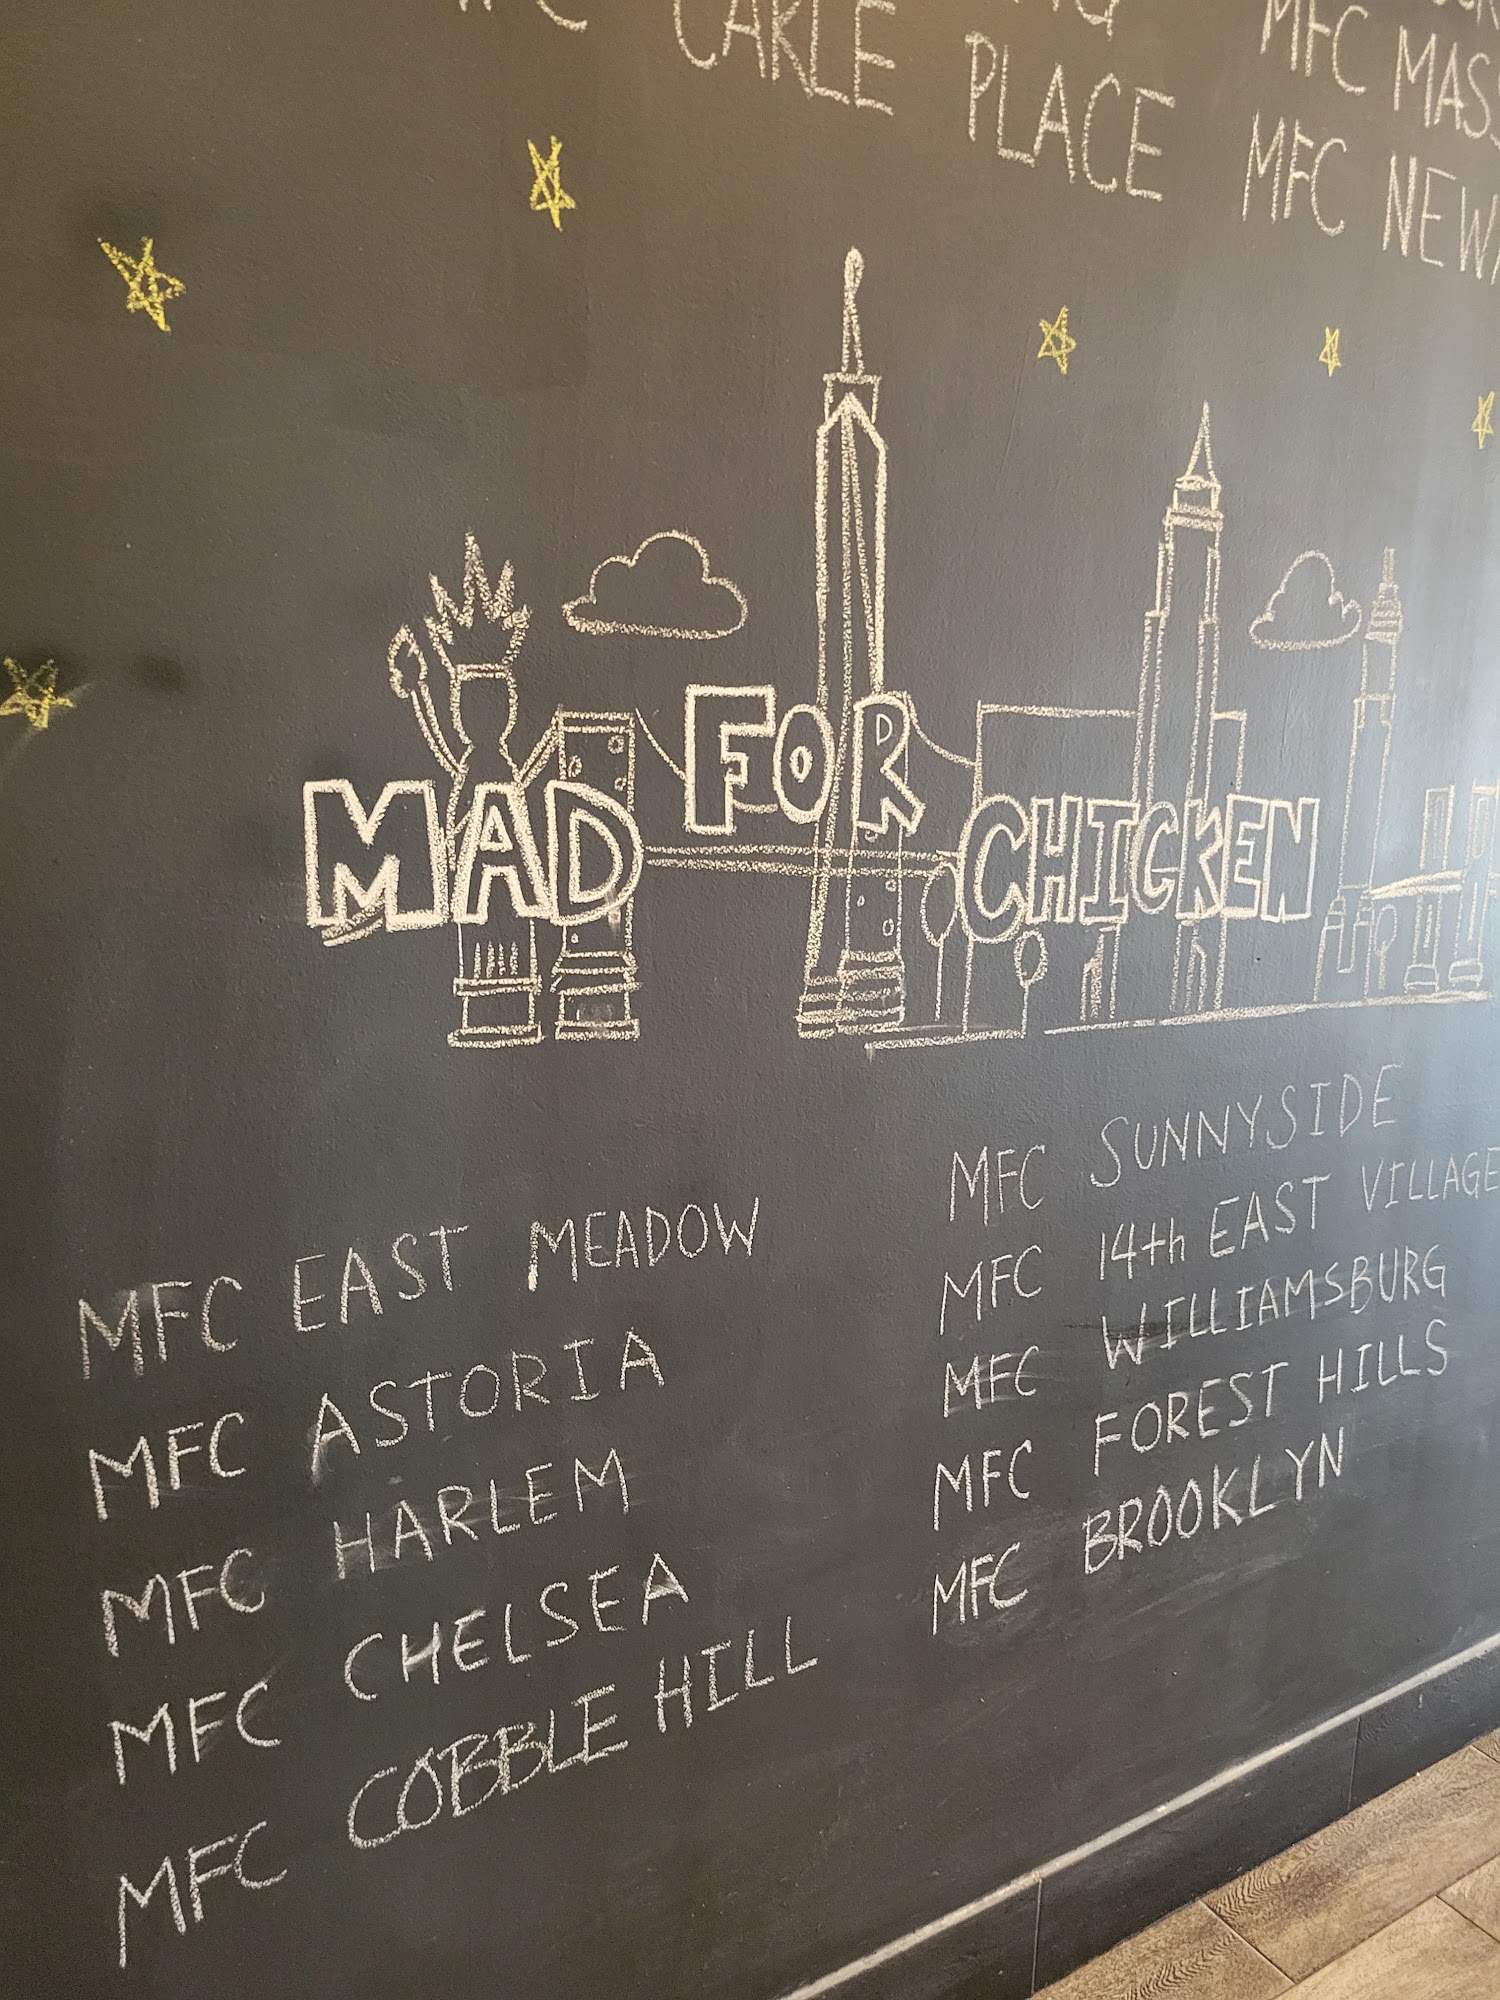 CARLE PLACE
MFC
MFC
MAD FOR CHICKEN
MFC EAST MEADOW
MFC ASTORIA
MFC HARLEM
MFC CHELSEA
MFC COBBLE HILL
MFC SUNNYSIDE
MFC 14th EAST VILLAGE
MFC WILLIAMSBURG
MFC FOREST HILLS
MFC BROOKLYN